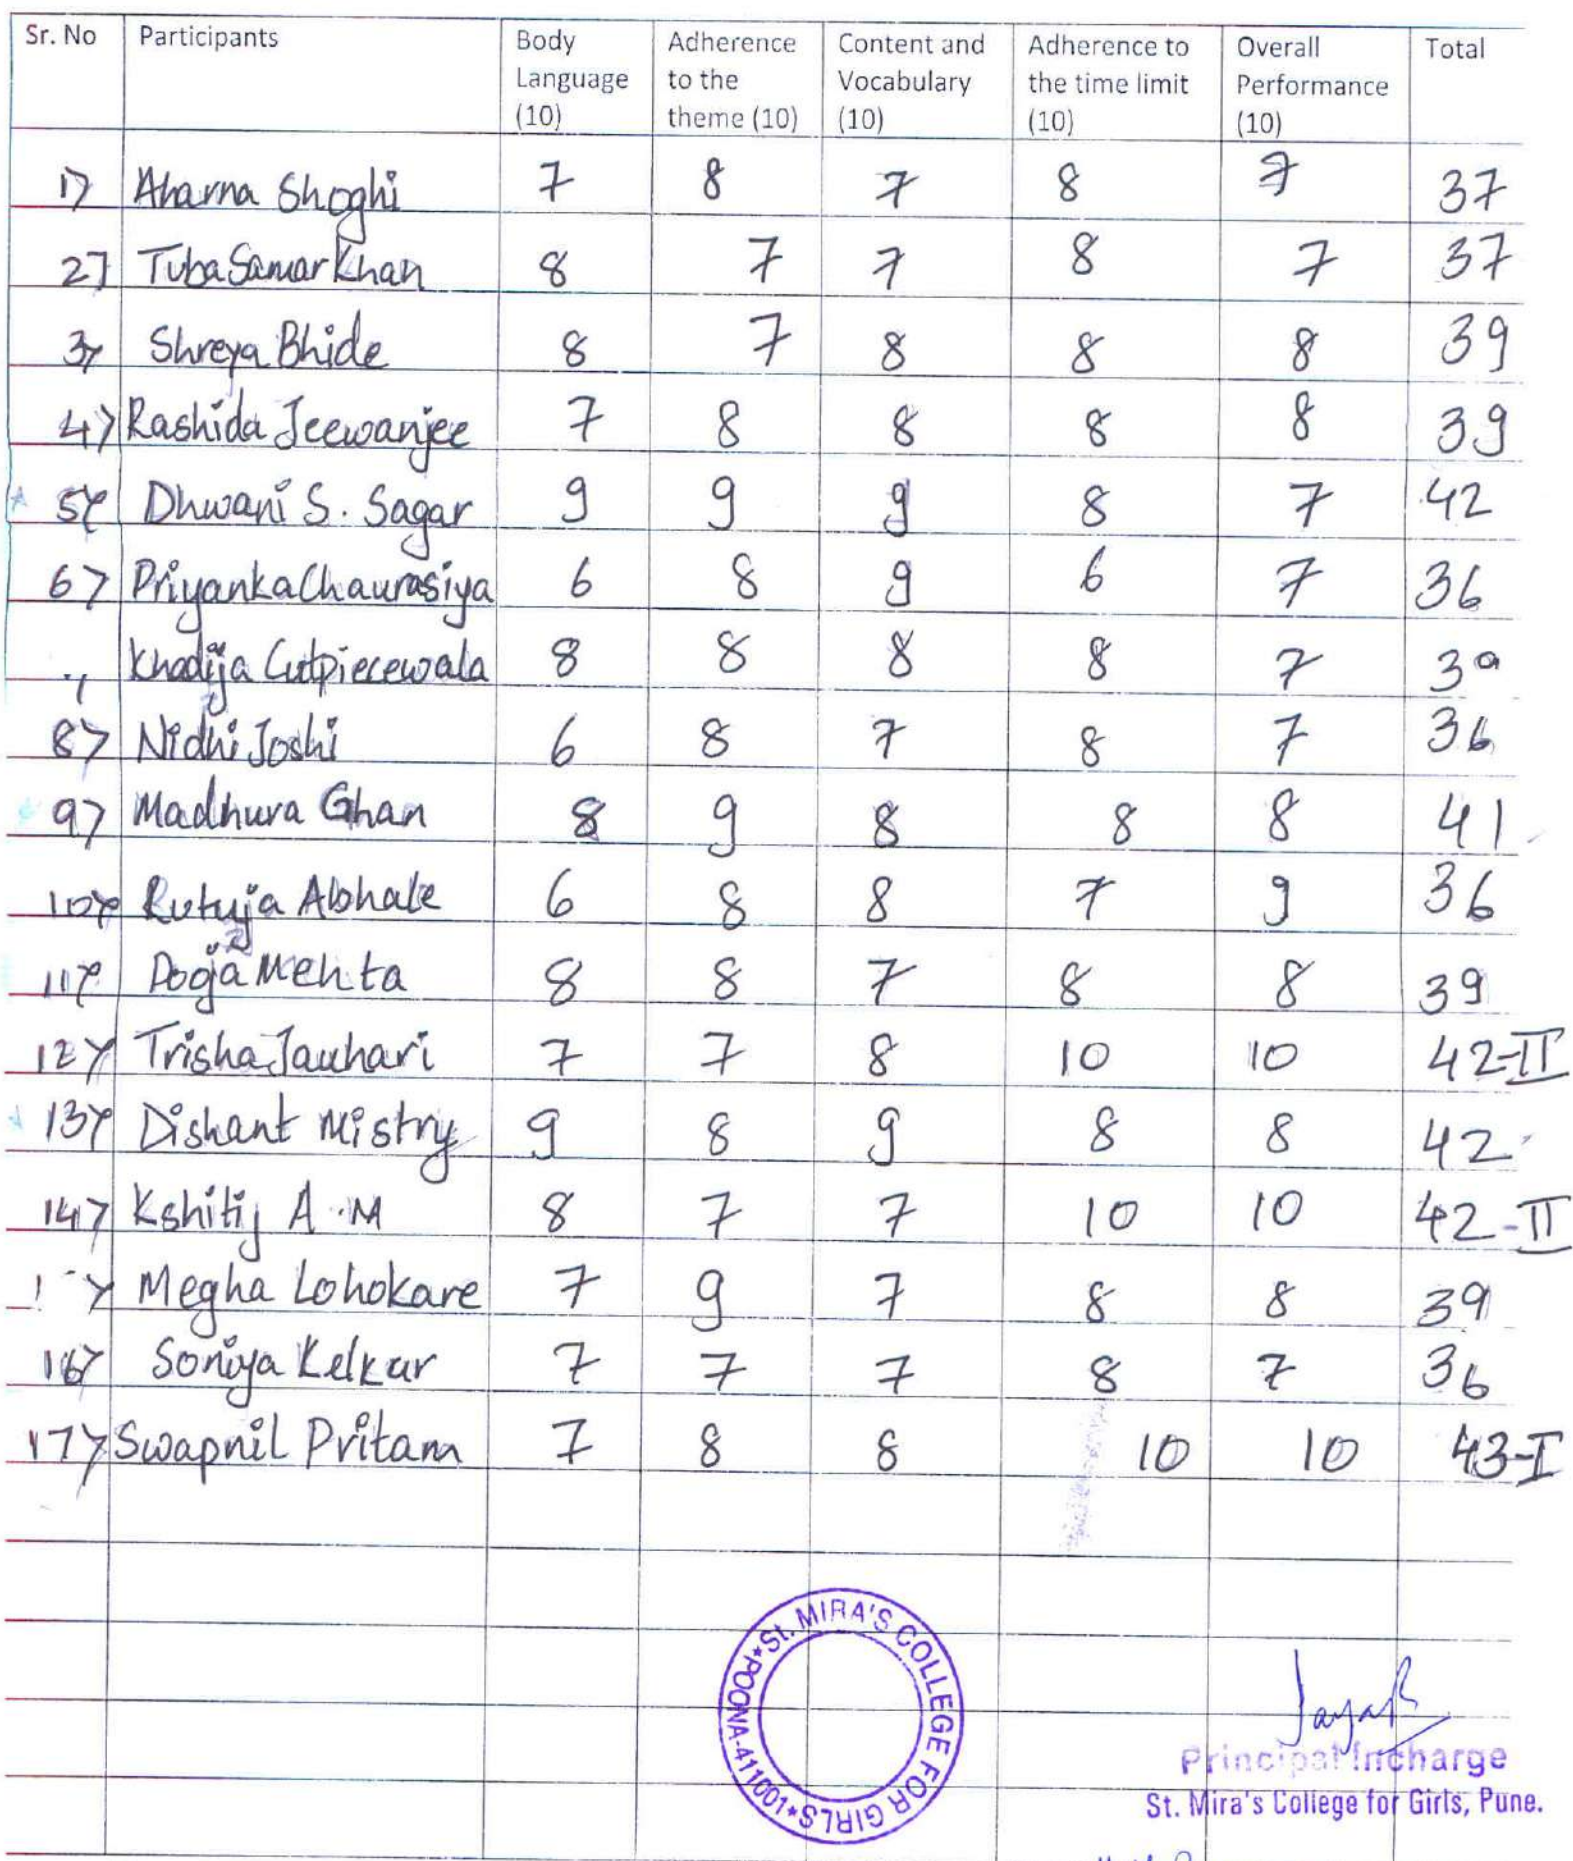 Sr. No Participants Body Language (10) Adherence to the theme (10) Content and Vocabulary (10) Adherence to the time limit (10) Overall Performance (10) Total
1> Aharna Shoghi 7 8 7 8 7 37
2] Tuba Samar Khan 8 7 7 8 7 37
3> Shreya Bhide 8 7 8 8 8 39
4> Rashida Jeewanjee 7 8 8 8 8 39
5> Dhwani S. Sagar 9 9 9 8 7 42
6> Priyanka Chaurasiya 6 8 9 6 7 36
Khadija Cutpiecewala 8 8 8 8 7 39
8> Nidhi Joshi 6 8 7 8 7 36
9> Madhura Ghan 8 9 8 8 8 41
10> Rutuja Abhale 6 8 8 7 9 36
11> Pooja Mehta 8 8 7 8 8 39
12> Trisha Jauhari 7 7 8 10 10 42-II
13> Dishant Mistry 9 8 9 8 8 42
14> Kshitij A.M 8 7 7 10 10 42-II
Megha Lohokare 7 9 7 8 8 39
16> Soniya Kelkar 7 7 7 8 7 36
17> Swapnil Pritam 7 8 8 10 10 43-I
St. MIRA'S COLLEGE FOR GIRLS * POONA-411001 *
Principal Incharge
St. Mira's College for Girls, Pune.